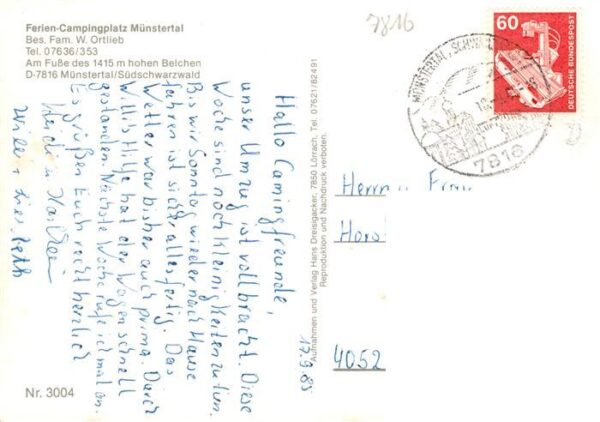 Ferien-Campingplatz Münstertal
Bes. Fam. W. Ortlieb
Tel. 07636/353
Am Fuße des 1415 m hohen Belchen
D-7816 Münstertal/Südschwarzwald
7816
60
DEUTSCHE BUNDESPOST
MÜNSTERTAL, SCHW
7816
Hallo Camingfreunde,
unser Umzug ist vollbracht. Diese
Woche sind noch kleinigkeiten zu tun.
Bis wir Sonntag wieder nach Hause
fahren ist sicher alles fertig. Das
Wetter war bisher auch prima. Durch
Willis Hilfe hat der Wagen schnell
gestanden. Nächste Woche rufe ich mal an.
Es grüßen Euch recht herzlich
17.9.85
Aufnahmen und Verlag Hans Dreisigacker, 7850 Lörrach, Tel. 07621/82491
Reproduktion und Nachdruck verboten.
Herrn u Frau
Horst
4052
Nr. 3004